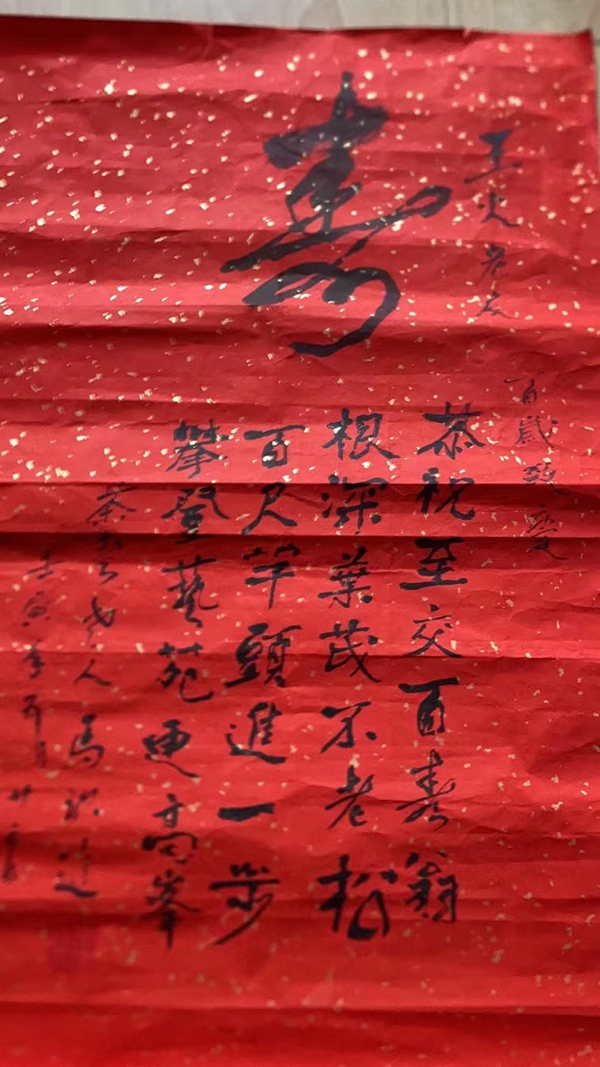 王火老友
百歲致慶
壽
恭祝至交百壽翁
根深葉茂不老松
百尺竿頭進一步
攀登藝苑更高峯
人 馬識途
壬寅年